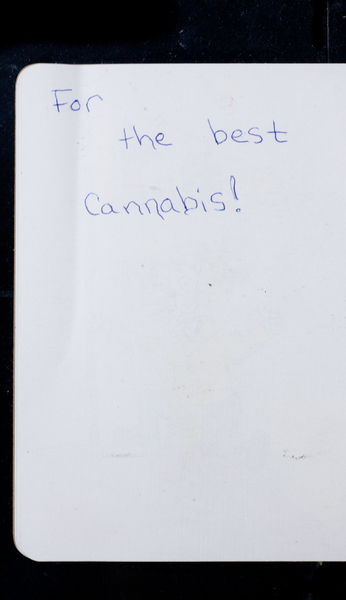 For
the best
Cannabis!